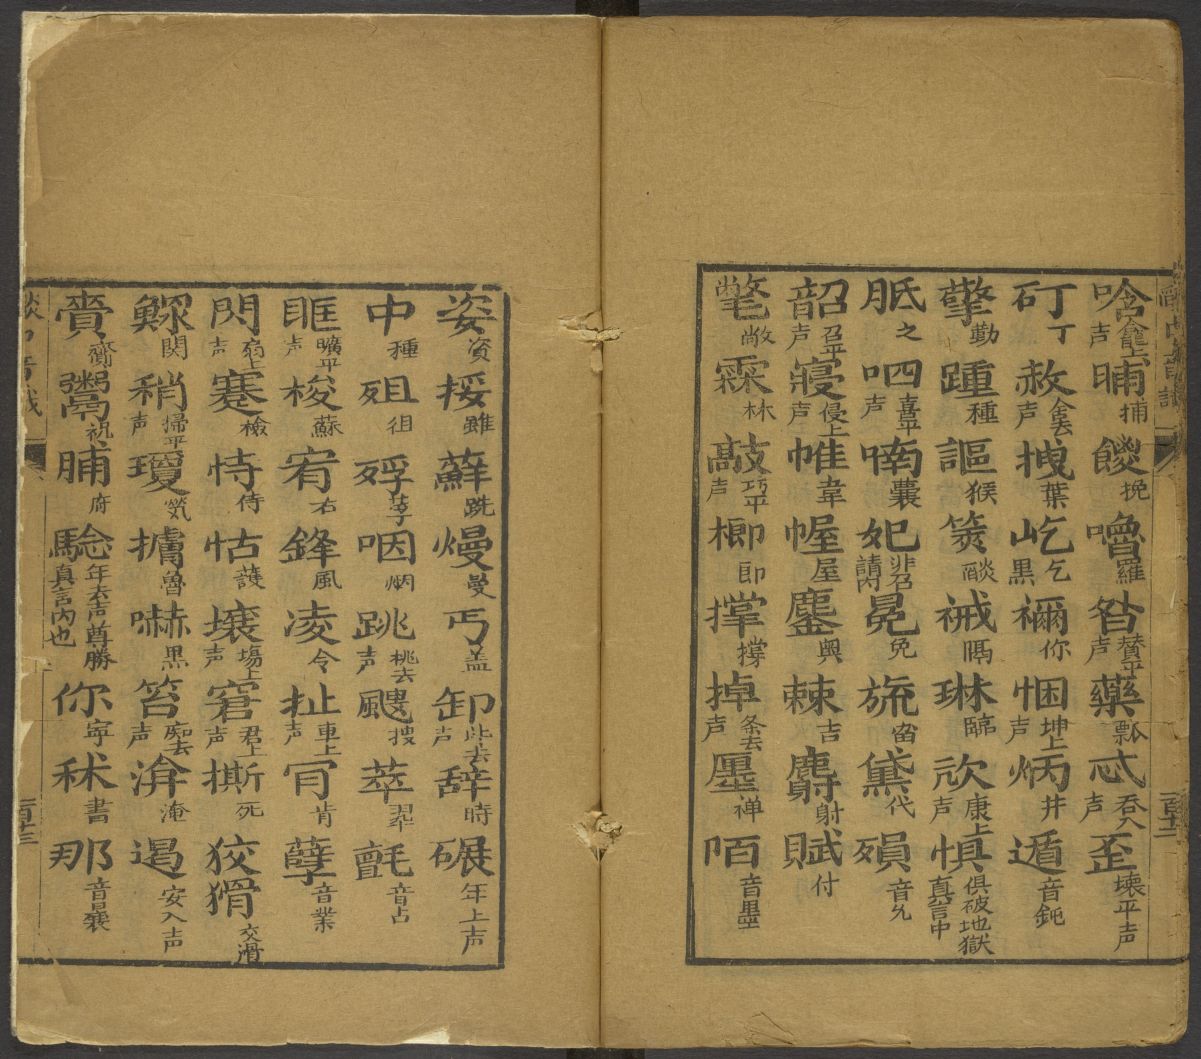 唅龕上声 晡捕 餤挽 嚕羅 昝賛平声 藥瓢 忒吞入声 歪壊平声
矴丁 赦舍去声 拽葉 屹乞黒 禰你 悃坤上声 炳丼 遁音鈍
擎勤 踵種 謳猴 䇲醶 裓嗝 琳臨 欣康上声 慎俱破地獄真言中
胝之 呬喜平声 喃囊 妃非召請内 冕免 旒畱 黛代 殞音允
韶召平声 寢侵上声 帷韋 幄屋 鏖輿 棘吉 麝射 賦付
氅敞 霖林 敲巧平声 楖即 撑撐 掉条去声 墨禅 陌音墨
姿資 挼雖 蘚跣 熳曼 丐盖 卸些去声 辞時 碾年上声
中種 殂徂 殍莩 咽烟 跳桃去声 颼搜 萃翠 氈音占
眶曠平声 梭蘇 宥右 鋒風 凌令 扯車上声 肎肯 孽音業
閃扇上声 蹇檢 恃侍 怙護 壌塲上声 窘君上声 撕死 狡猾交滑
鰥関 稍掃平声 瓊㷀 擄魯 嚇黒 笞痴去声 渰淹 遏安入声
賫齎 鬻祝 脯府 騐年去声尊勝真言内也 你寜 秫書 那音曩
百十二
百十三